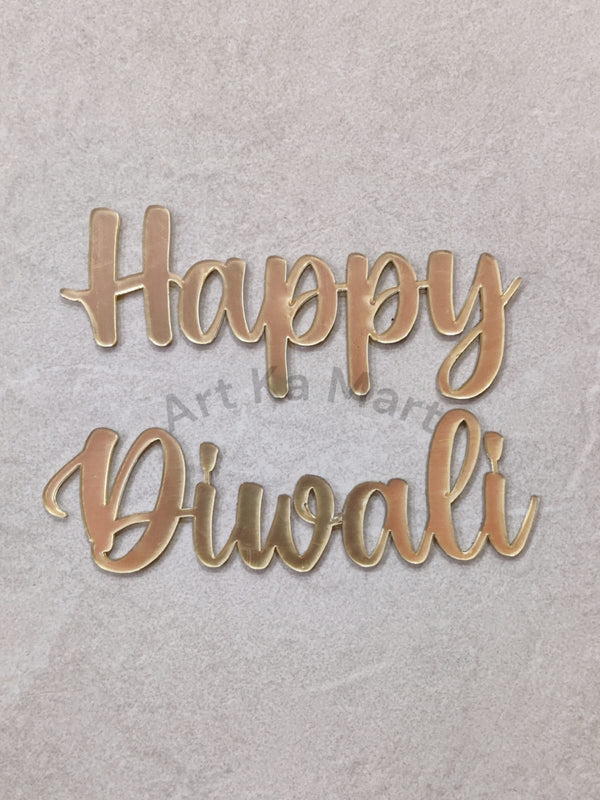 Happy
Art Ka Mart
Diwali